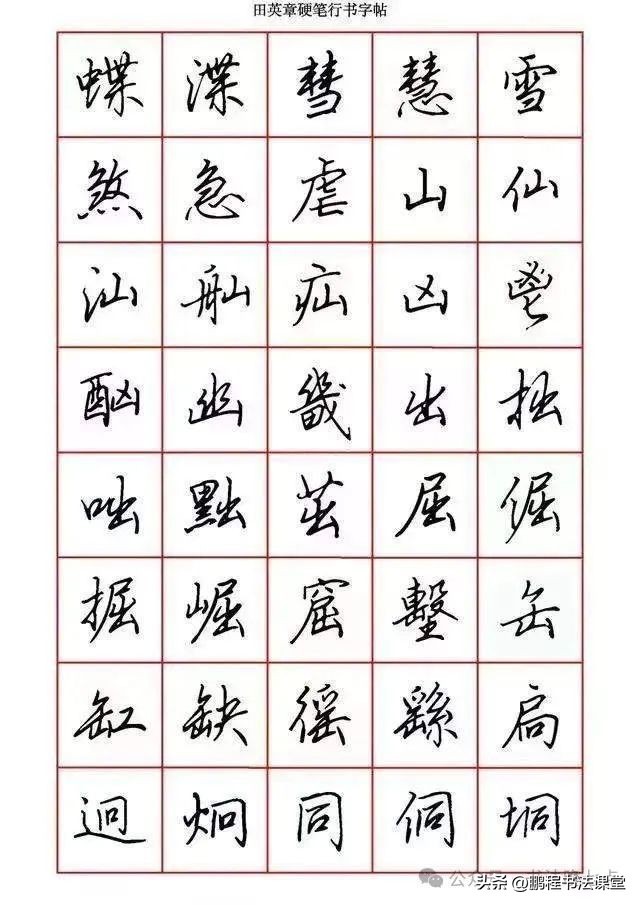 田英章硬笔行书字帖
蝶 渫 彗 慧 雪
煞 急 虐 山 仙
汕 舢 疝 凶 鬯
酗 幽 畿 出 拙
咄 黜 茁 屈 倔
掘 崛 窟 缶
缸 缺 徭 繇 扃
迥 炯 同 侗 垌
头条 @鹏程书法课堂